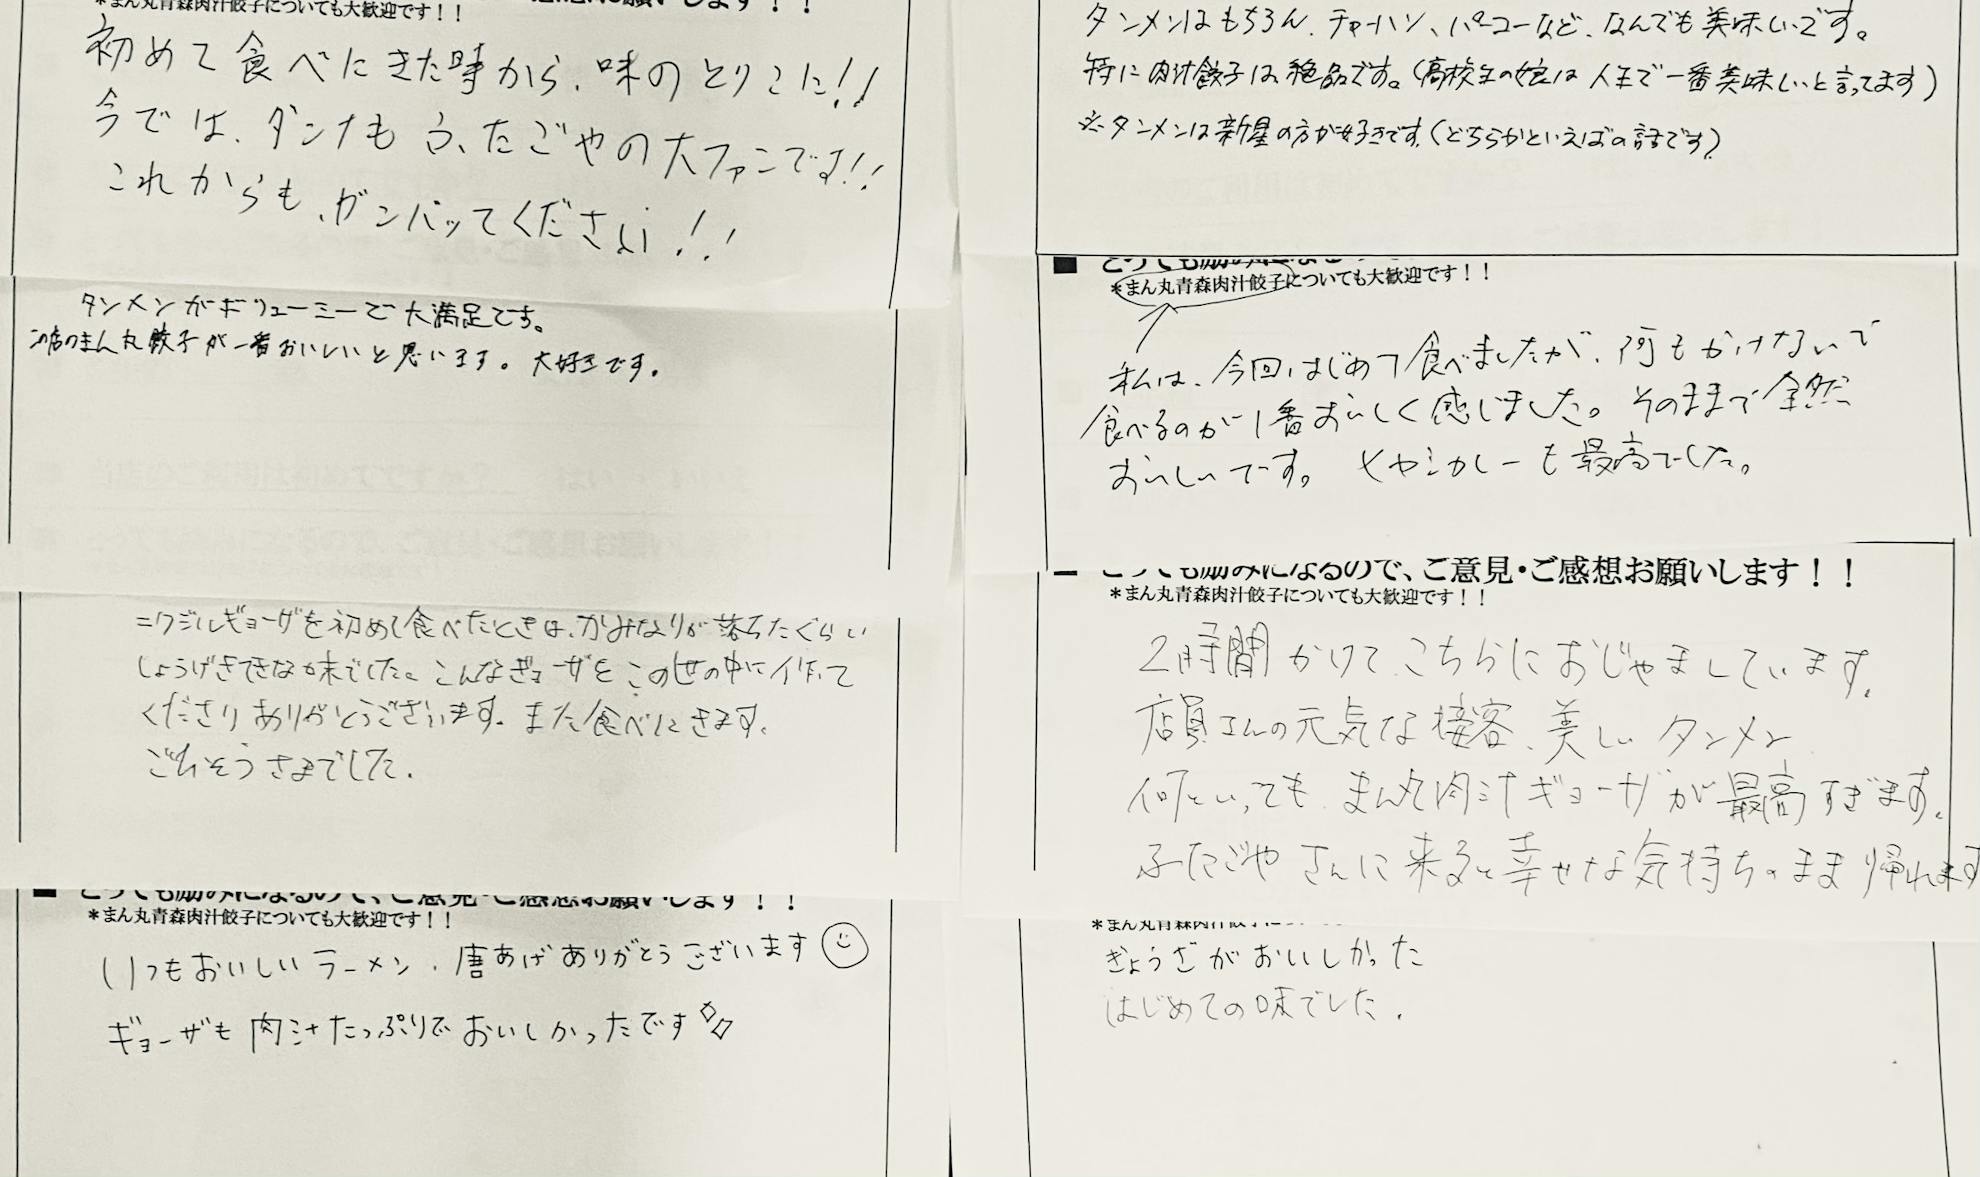 *まん丸青森肉汁餃子についても大歓迎です！！
初めて食べにきた時から、味のとりこに!!
今では、ダンナもふたごやの大ファンです!!
これからも、ガンバッてください!!
タンメンがボリューミーで大満足です。
の店のまん丸餃子が一番おいしいと思います。大好きです。
ニクジルギョーザを初めて食べたときは、かみなりが落ちたぐらい
しょうげきてきな味でした。こんなギョーザをこの世の中に作って
くださりありがとうございます。また食べにきます。
ごちそうさまでした。
■ とっても励みになるので、ご意見・ご感想お願いします！！
*まん丸青森肉汁餃子についても大歓迎です！！
いつもおいしいラーメン、唐あげありがとうございます
ギョーザも肉汁たっぷりでおいしかったです
タンメンはもちろん、チャーハン、パーコーなど、なんでも美味しいです。
特に肉汁餃子は絶品です。(高校生の娘は人生で一番美味しいと言ってます)
※タンメンは新星の方が好きです。(どちらかといえばの話です)
*まん丸青森肉汁餃子についても大歓迎です！！
私は、今回はじめて食べましたが、何もかけないで
食べるのが1番おいしく感じました。そのままで全然
おいしいです。ヒヤシカレーも最高でした。
とっても励みになるので、ご意見・ご感想お願いします！！
*まん丸青森肉汁餃子についても大歓迎です！！
2時間かけてこちらにおじゃましています。
店員さんの元気な接客、美しいタンメン
何といっても、まん丸肉汁ギョーザが最高すぎます。
ふたごやさんに来ると幸せな気持ちのまま帰れます
*まん丸青森肉汁餃子につい
ぎょうざがおいしかった
はじめての味でした。